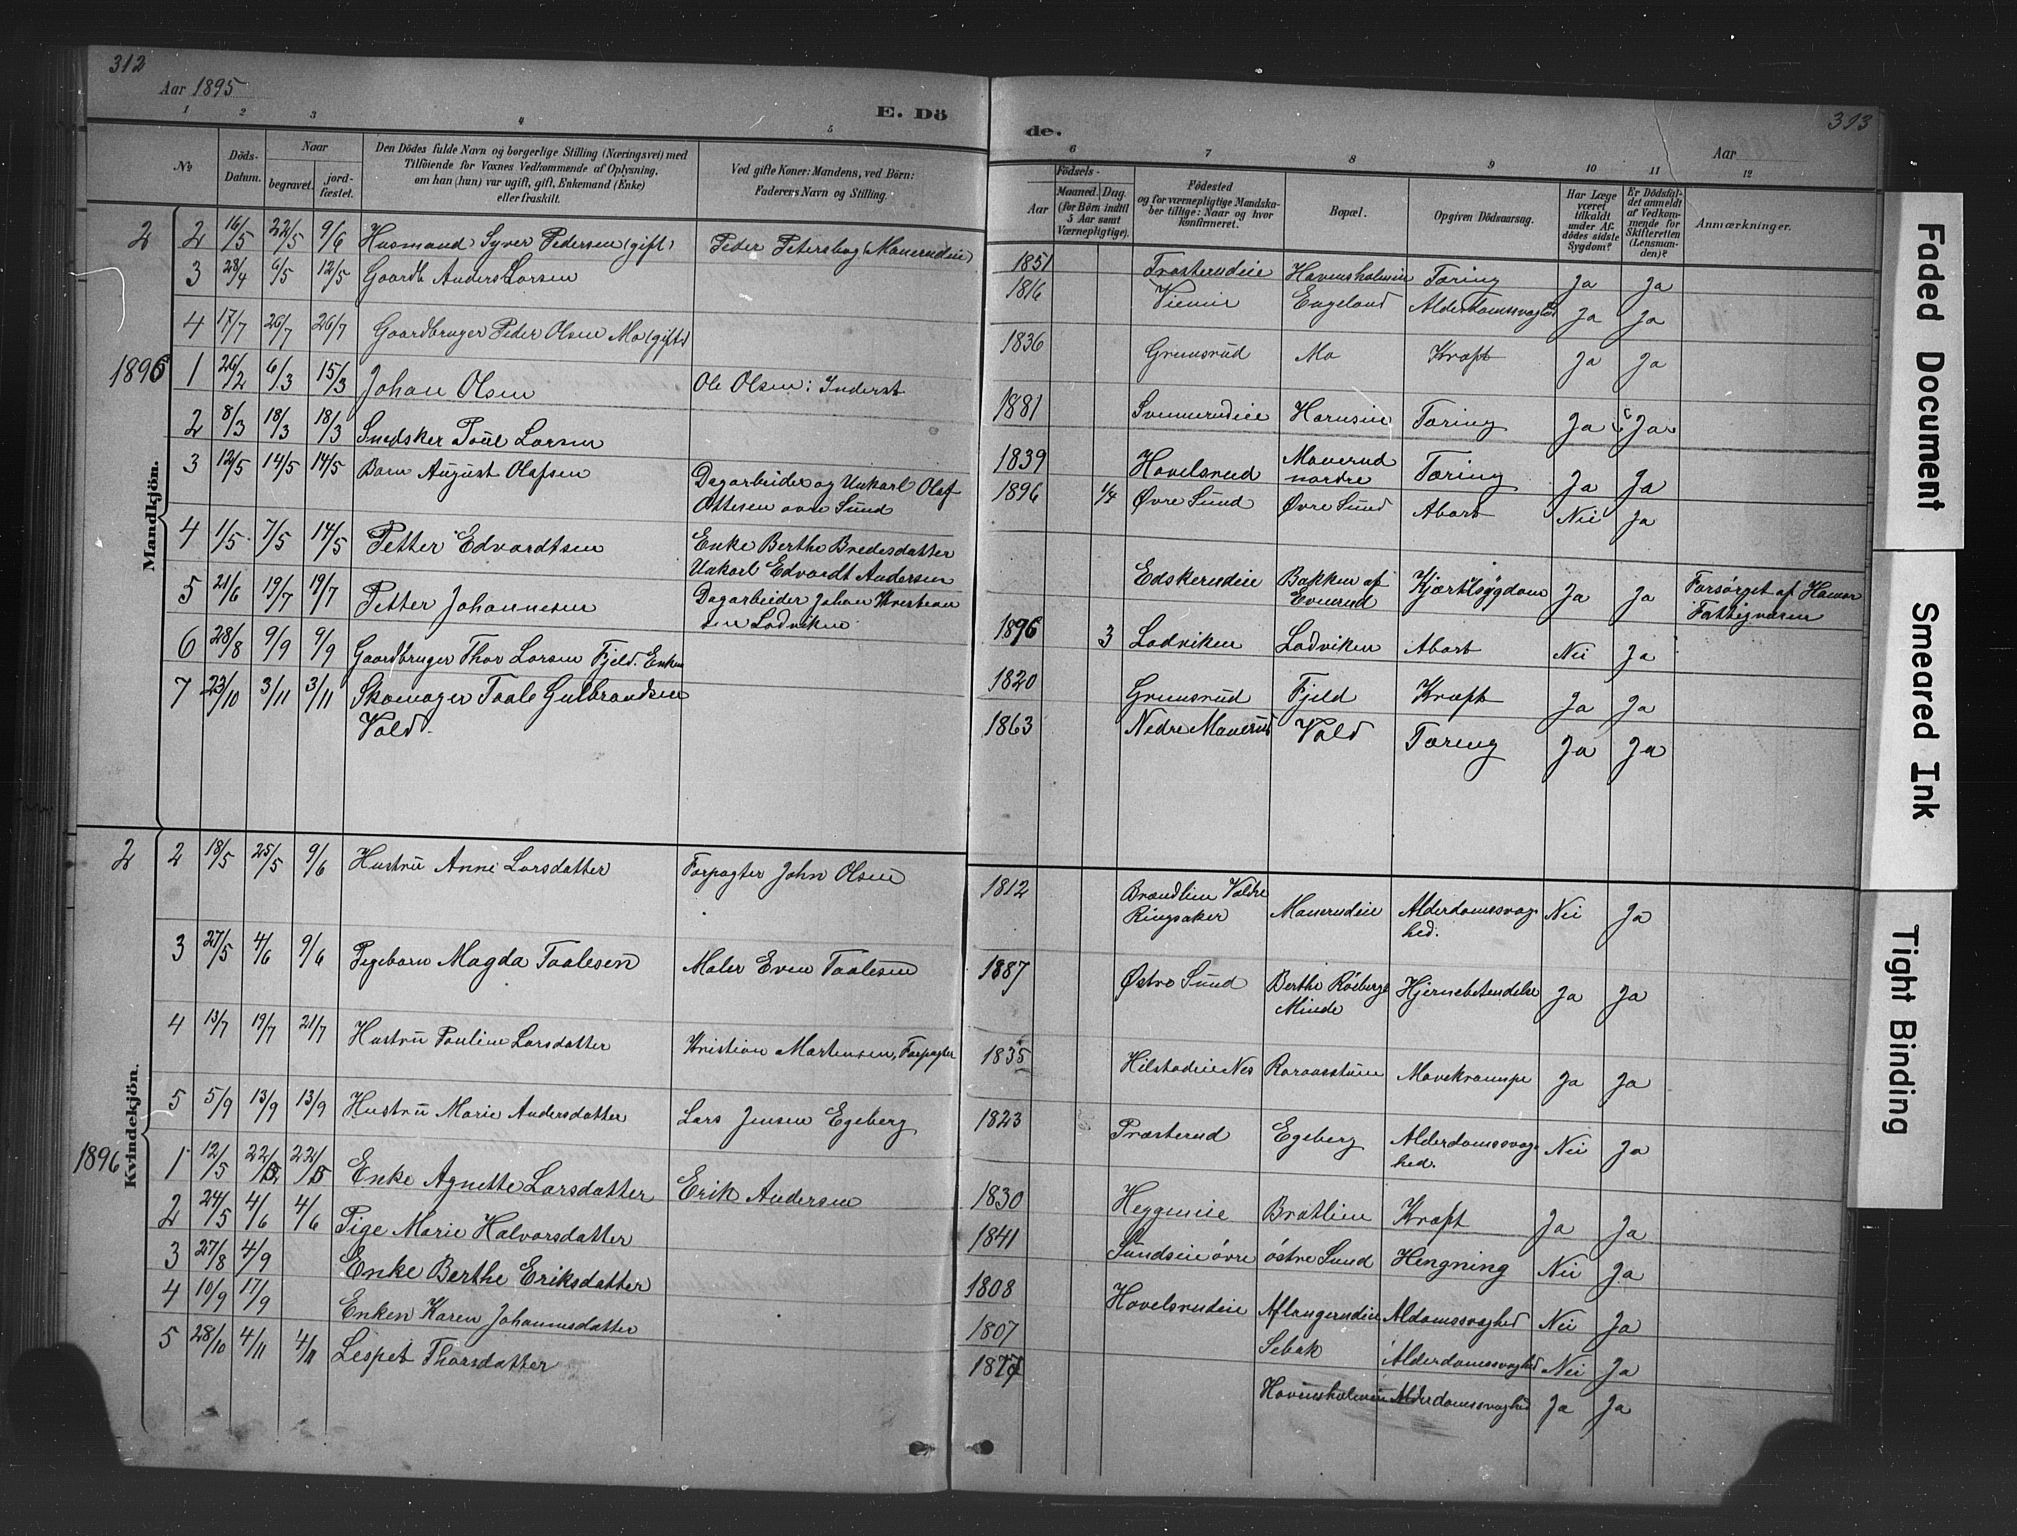 312
Aar 1895
E. Dö
de.
Aar
313
1 2 3 4 5 6 7 8 9 10 11 12
No
Döds-Datum.
Naar
begravet.
jord-fæstet.
Den Dödes fulde Navn og borgerlige Stilling (Næringsvei) med
Tilföiende for Voxnes Vedkommende af Oplysning,
om han (hun) var ugift, gift, Enkemand (Enke)
eller fraskilt.
Ved gifte Koner: Mandens, ved Börn:
Faderens Navn og Stilling.
Födsels-
Aar
Maaned. Dag.
(for Börn indtil
5 Aar samt
Værnepligtige).
Födested
og for værnepligtige Mandska-
ber tillige: Naar og hvor
konfirmeret.
Bopæl.
Opgiven Dödsaarsag.
Har Læge
været
tilkaldt
under Af-
dödes sidste
Sygdom?
Er Dödsfal-
det anmeldt
af Vedkom-
mende for
Skifteretten
(Lensman-
den)?
Anmærkninger.
Mandkjön.
2 2 16/5 22/5 9/6 Husmand Syver Pedersen (gift) Peder Petersbog (Manerudeie) 1851 Frosterudeie Hovensholmen Tæring Ja Ja
3 28/4 6/5 12/5 Gaardb Anders Larsen 1816 Viemie Engeland Alderdomssvaghed Ja Ja
4 17/7 26/7 26/7 Gaardbruger Peder Olsen Mo (gift) 1836 Grimsrud Mo Kræft Ja Ja
1896 1 26/2 6/3 15/3 Johan Olsen Ole Olsen: Inderst 1881 Svennerudeie Hornseie Tæring Ja Ja
2 8/3 18/3 18/3 Snedsker Poul Larsen 1839 Hovelsrud Maverud nordre Tæring Ja Ja
3 12/5 14/5 14/5 Barn August Olafsen Dagarbeider og Unkarl Olaf
Ottesen øvre Sund 1896 1/4 Øvre Sund Øvre Sund Abort Nei Ja
4 1/5 7/5 14/5 Petter Edvardtsen Enke Berthe Bredesdatter
Unkarl Edvardt Andersen Edskerudeie Bakken af
Evenrud Hjærtesygdom Ja Ja Forsørget af Hamar
Fattigvæsen
5 21/6 19/7 19/7 Petter Johannesen Dagarbeider Johan Kristian
sen Lodviken 1896 3 Lodviken Lodviken Abort Nei Ja
6 28/8 9/9 9/9 Gaardbruger Thor Larsen Fjeld. Enkem 1820 Grimsrud Fjeld Kræft Ja Ja
7 23/10 3/11 3/11 Skomager Taale Gulbrandsen
Vold. 1863 Nedre Maverud Vold Tæring Ja Ja
Kvindekjön.
2 2 18/5 25/5 9/6 Hustru Anne Larsdatter Forpagter John Olsen 1812 Brændlien Valdre
Ringsaker Manerudeie Alderdomssvag-
hed. Nei Ja
3 27/5 4/6 9/6 Pigebarn Magda Taalesen Maler Even Taalesen 1887 Østre Sund Berthe Röebergs
Minde Hjernebetendelse Ja Ja
4 13/7 19/7 21/7 Hustru Pauline Larsdatter Kristian Martensen, Forpagter 1835 Hilstadeie Nes Roraasstuen Mavekrampe Ja Ja
5 5/9 13/9 13/9 Hustru Marie Andersdatter Lars Jensen Egeberg 1823 Præsterud Egeberg Alderdomssvag-
hed. Nei Ja
1896 1 12/5 22/5 22/5 Enke Agnette Larsdatter Erik Andersen 1830 Heggeneie Brotlien Kræft Ja Ja
2 24/5 4/6 4/6 Pige Marie Halvorsdatter 1841 Sundseie øvre østre Sund Hengning Nei Ja
3 27/8 4/9 Enke Berthe Eriksdatter 1808 Hovelsrudeie Aflangerudeie Aldomssvaghed Nei Ja
4 10/9 17/9 Enken Karen Johannesdatter 1807 Alderdomssvaghed Nei Ja
5 28/10 4/11 4/11 Lespet Thorsdatter Hovinsholmen Alderdomssvaghed Ja Ja
Faded Document
Smeared Ink
Tight Binding